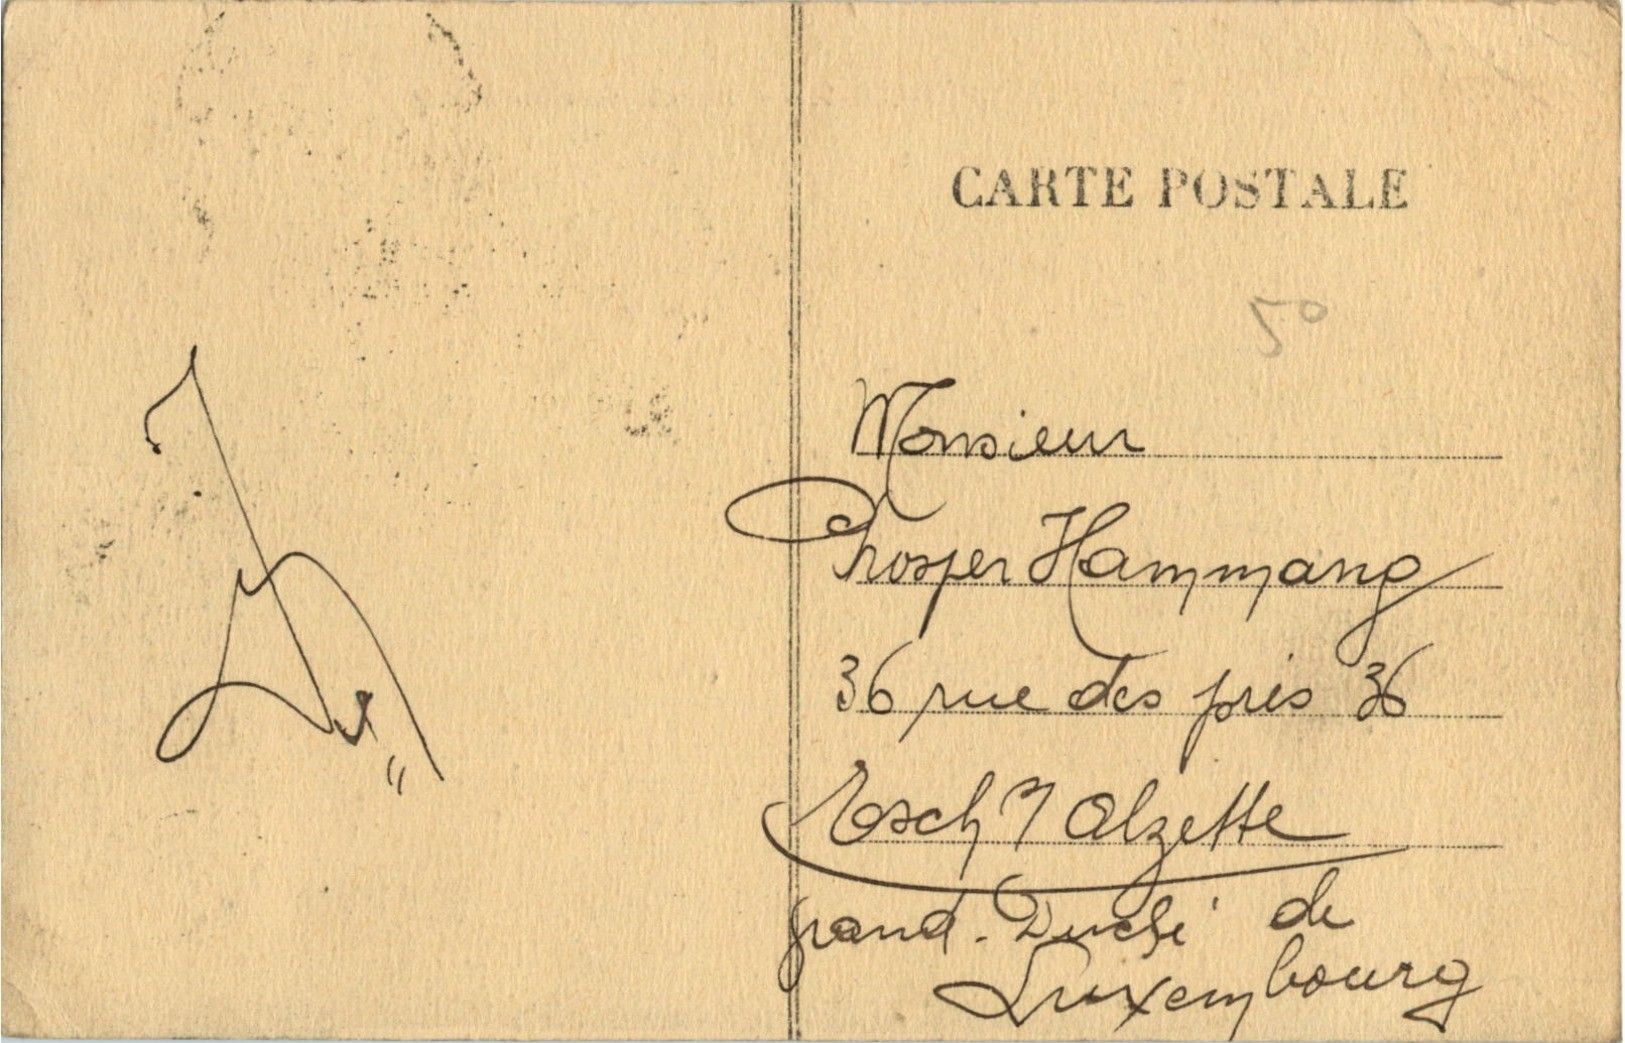 CARTE POSTALE
50
Monsieur
Prosper Hammang
36 rue des prés 36
Esch / Alzette
grand-Duché de
Luxembourg